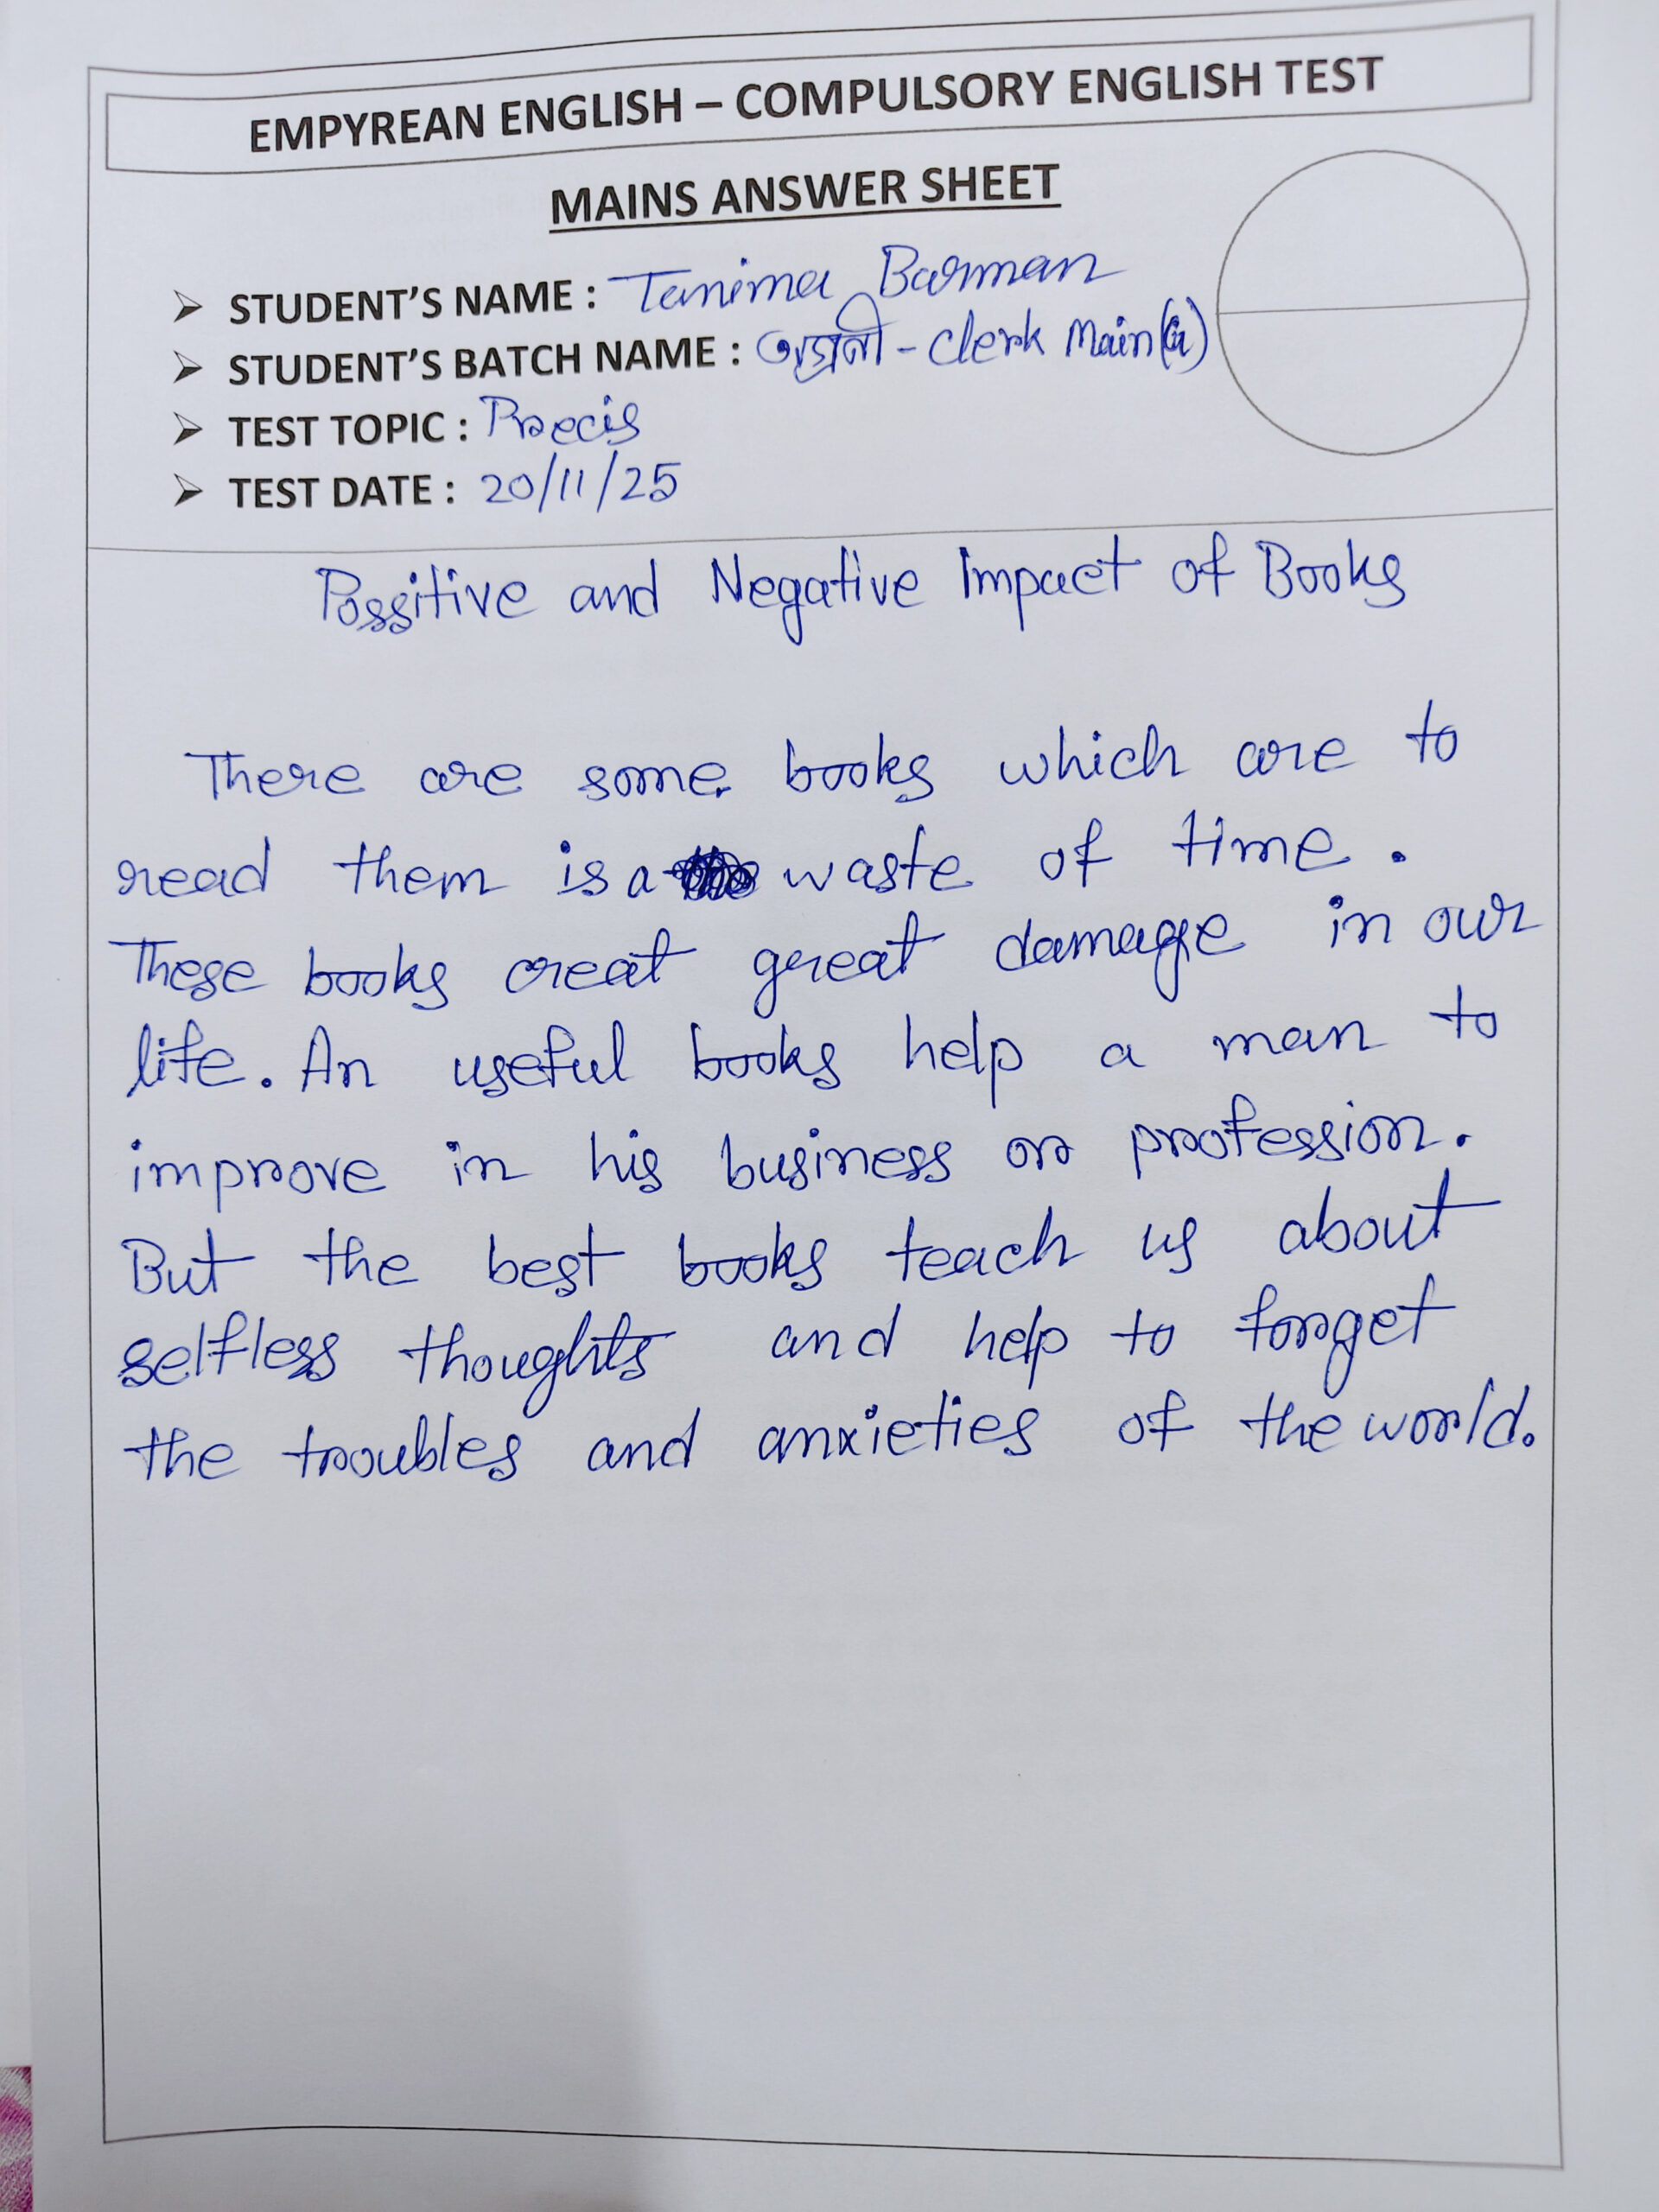 EMPYREAN ENGLISH – COMPULSORY ENGLISH TEST
MAINS ANSWER SHEET
➤ STUDENT'S NAME : Tanima Barman
➤ STUDENT'S BATCH NAME : অগ্রণী - Clerk Main
➤ TEST TOPIC : Precis
➤ TEST DATE : 20/11/25
Possitive and Negative Impact of Books
There are some books which are to
read them is a waste of time.
These books creat great damage in our
life. An useful books help a man to
improve in his business or profession.
But the best books teach us about
selfless thoughts and help to forget
the troubles and anxieties of the world.